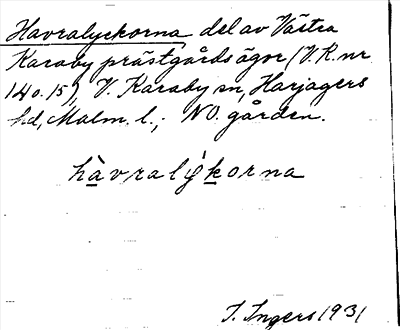 Havralyckorna del av Västra
Karaby prästgårdsägor (V.K. nr
14 o. 15), V. Karaby sn, Harjagers
hd, Malm. l.; NO. gården.
hàvralykorna
I. Ingers 1931